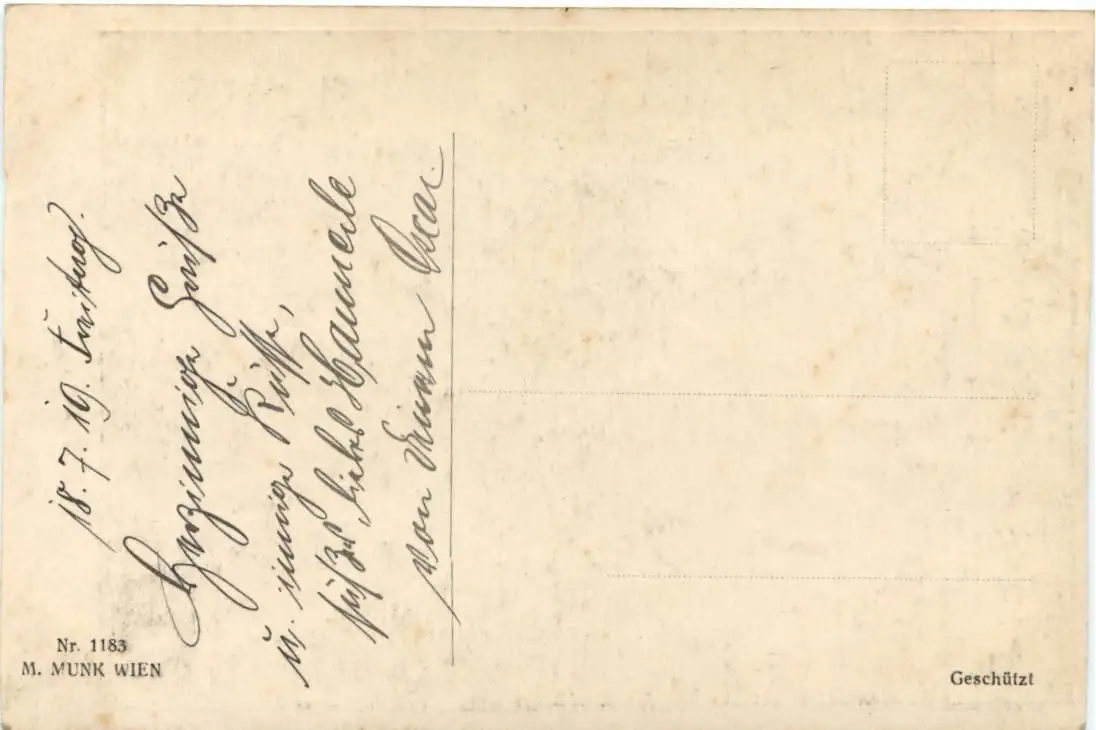 18. 7. 19. Freitag.
Herzinnige Grüße
u. innige Küsse,
süßes, liebes Hannele
von Deinem Oscar.
Nr. 1183
M. MUNK WIEN
Geschützt